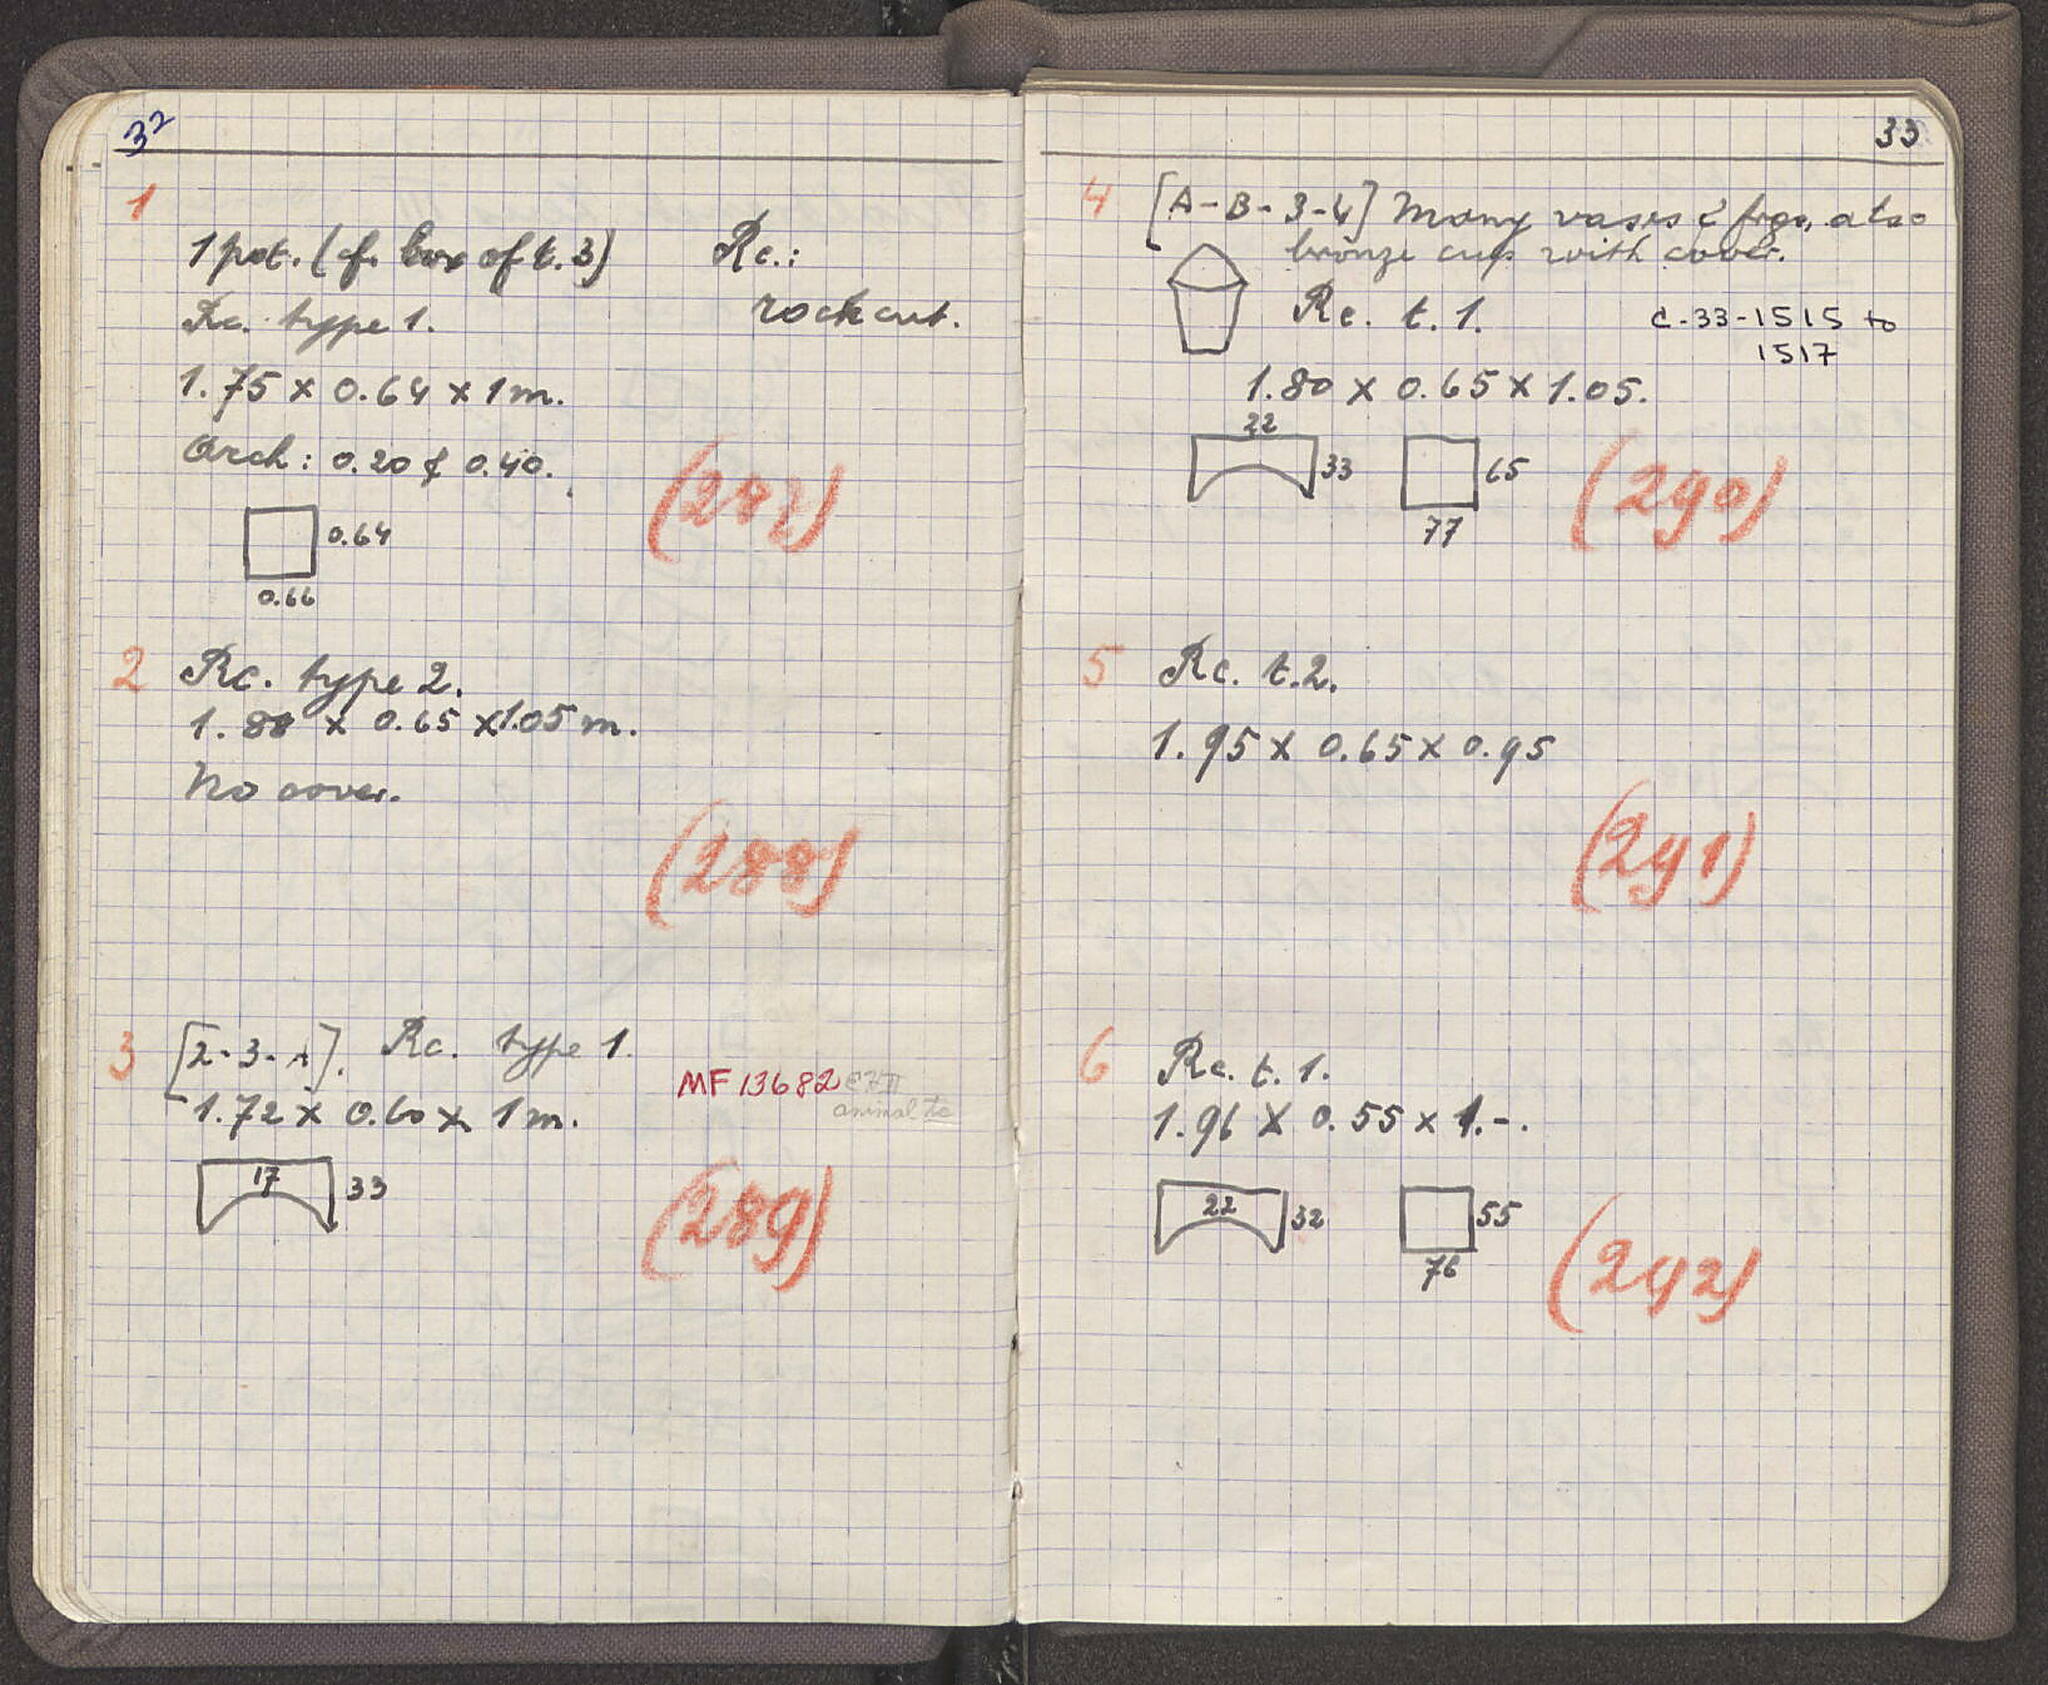 32
1
1 pot. (cf. box of t. 3) Rc.:
Rc. type 1. rock cut.
1.75 x 0.64 x 1 m.
Arch: 0.20 & 0.40.
(287)
0.64
0.66
2 Rc. type 2.
1.80 x 0.65 x 1.05 m.
No cover.
(288)
3 [2-3-A]. Rc. type 1.
MF 13682
animal tc
1.72 x 0.60 x 1 m.
17 33
(289)
33
4 [A-B-3-4] Many vases & figs, also
bronze cup with cover.
Rc. t. 1. C-33-1515 to
1517
1.80 x 0.65 x 1.05.
22
33 65
77
(290)
5 Rc. t. 2.
1.95 x 0.65 x 0.95
(291)
6 Rc. t. 1.
1.96 x 0.55 x 1.-.
22 32 55
76
(292)